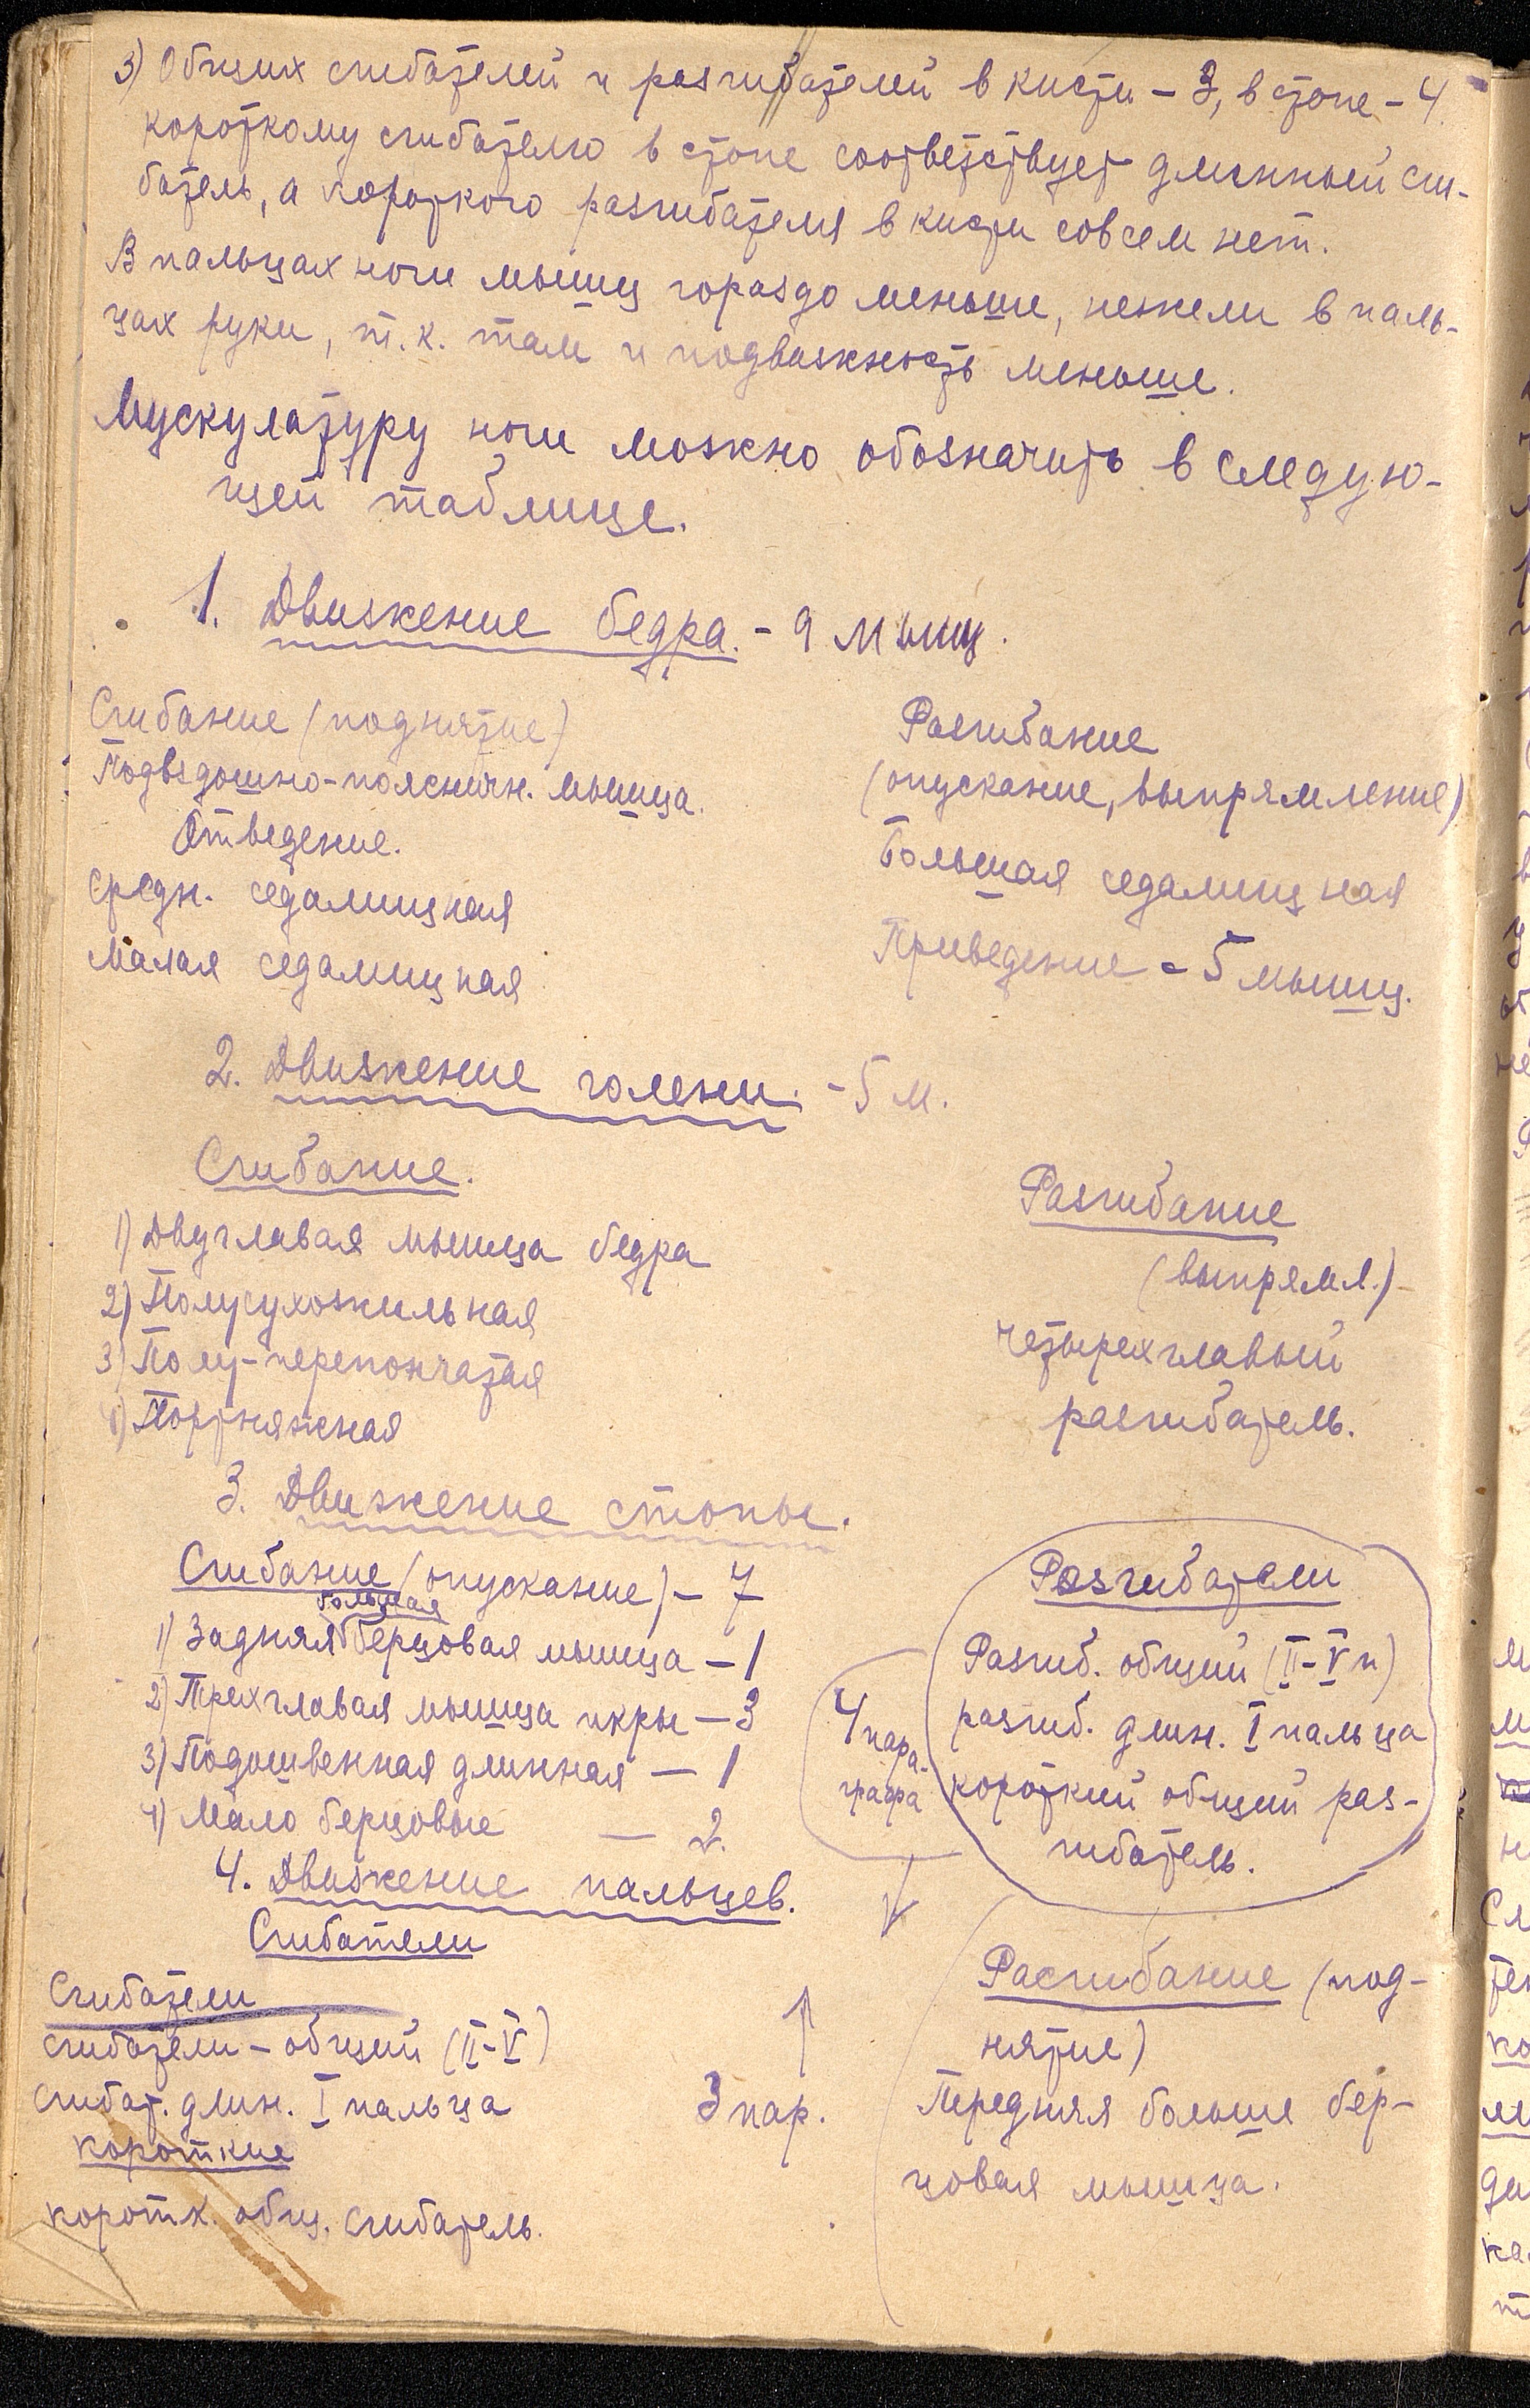 3) Общих сгибателей и разгибателей в кисти – 3, в стопе – 4.
короткому сгибателю в стопе соответствует длинный сги-
батель, а короткого разгибателя в кисти совсем нет.
В пальцах ноги мышц гораздо меньше, нежели в паль-
цах руки, т.к. там и подвижность меньше.
Мускулатуру ноги можно обозначить в следую-
щей таблице.
1. Движение бедра. – 9 мышц.
Сгибание (поднятие)
Подвздошно-поясничн. мышца.
Отведение.
средн. седалищная
малая седалищная
Разгибание
(опускание, выпрямление)
Большая седалищная
Приведение – 5 мышц.
2. Движение голени. – 5 м.
Сгибание.
1) Двуглавая мышца бедра
2) Полусухожильная
3) Полу-перепончатая
4) Портняжная
Разгибание
(выпрямл.)
четырехглавый
разгибатель.
3. Движение стопы.
Сгибание (опускание) – 7
большая
1) Задняя берцовая мышца – 1
2) Трехглавая мышца икры – 3
3) Подошвенная длинная – 1
4) Мало берцовые – 2.
Разгибатели
Разгиб. общий (II–V п)
разгиб. длин. I пальца
короткий общий раз-
гибатель.
4 пара-
графа
4. Движение пальцев.
Сгибатели
Сгибатели
сгибатели – общий (II–V)
сгибат. длин. I пальца
короткие
коротк. общ. сгибатель.
3 пар.
Расгибание (под-
нятие)
Передняя больше бер-
цовая мышца.